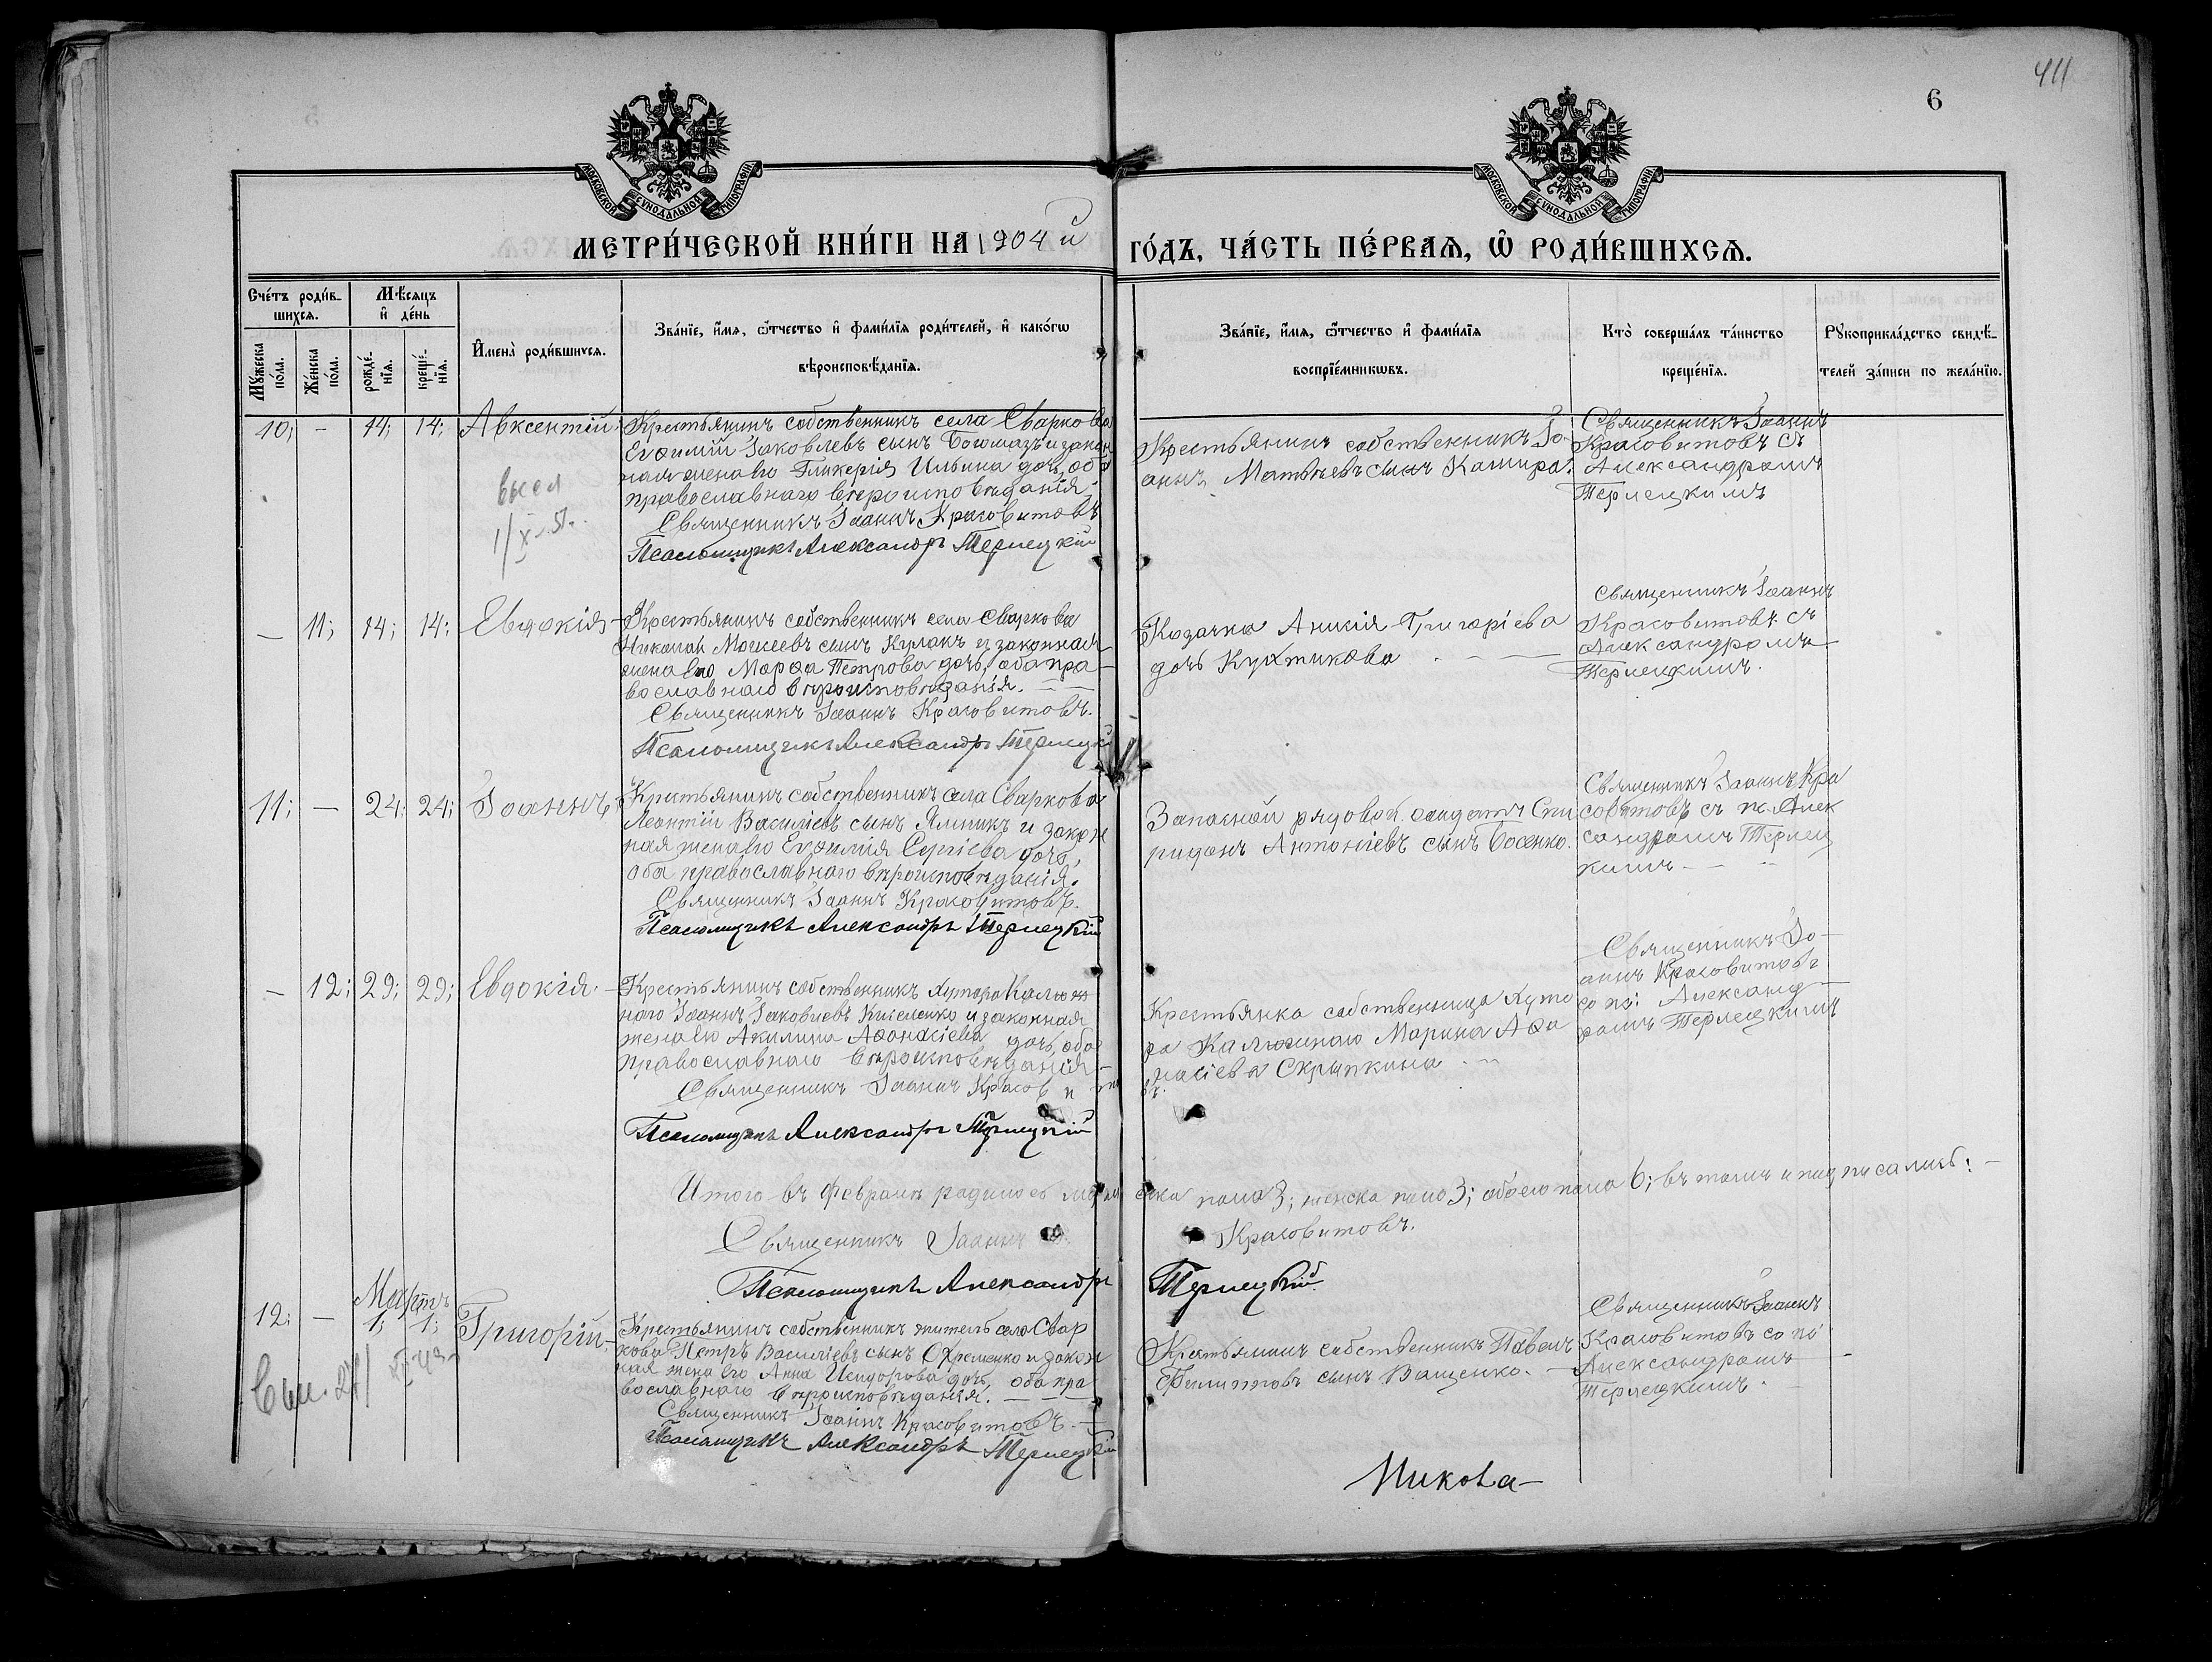 411
6
МОСКОВСКОЙ СѴНОДАЛЬНОЙ ТИПОГРАФІИ
МОСКОВСКОЙ СѴНОДАЛЬНОЙ ТИПОГРАФІИ
МЕТРИ́ЧЕСКОЙ КНИ́ГИ НА 1904 й
ГО́ДЪ, ЧА́СТЬ ПЕ́РВАѦ, Ѡ҆ РОДИ́ВШИХСѦ.
Сче́тъ роди́в-
шихсѧ.
Мѣ́сѧцъ
и҆ де́нь
Мꙋ́жеска
по́ла.
Же́нска
по́ла.
рожде́-
нїѧ.
креще́-
нїѧ.
И҆мена̀ роди́вшихсѧ.
Зва́нїе, и҆́мѧ, ѻ҆́тчество и҆ фами́лїѧ роди́телей, и҆ како́гѡ
вѣроисповѣ́данїѧ.
Зва́нїе, и҆́мѧ, ѻ҆́тчество и҆ фами́лїѧ
воспрїе́мникѡвъ.
Кто̀ соверша́лъ та́инство
креще́нїѧ.
Рꙋкоприкла́дство свидѣ́-
телей за́писи по жела́нїю.
10; - 14; 14; Авксентій.
Крестьянинъ собственникъ села Сваркова
Евѳимій Іаковлевъ сынъ Богомазъ и закон
ная жена его Гликерія Ильина дочь, оба
православнаго вѣроисповѣданія.
Священникъ Іоаннъ Красовитовъ
Псаломщикъ Александръ Терлецкій
Крестьянинъ собственникъ Іо-
аннъ Матѳѣевъ сынъ Кашира.
Священникъ Іоаннъ
Красовитовъ съ
Александромъ
Терлецкимъ
- 11; 14; 14; Евдокія
Крестьянинъ собственникъ села Сваркова
Николай Моисеевъ сынъ Кулакъ и законная
жена его Марѳа Петрова дочь, оба пра-
вославнаго вѣроисповѣданія.
Священникъ Іоаннъ Красовитовъ.
Псаломщикъ Александръ Терлецкій
Козачка Аникія Григоріева
дочь Кухтикова
Священникъ Іоаннъ
Красовитовъ съ
Александромъ
Терлецкимъ.
11; - 24; 24; Іоаннъ
Крестьянинъ собственникъ села Сваркова
Леонтій Василіевъ сынъ Ямникъ и закон
ная жена его Евѳимія Сергіева дочь,
оба православнаго вѣроисповѣданія.
Священникъ Іоаннъ Красовитовъ.
Псаломщикъ Александръ Терлецкій
Запасной рядовой солдатъ Спи
ридонъ Антоніевъ сынъ Босенко.
Священникъ Іоаннъ Кра
совитовъ съ п. Алек
сандромъ Терлец
кимъ
- 12; 29; 29; Евдокія.
Крестьянинъ собственникъ хутора Калюж
наго Іоаннъ Іаковлевъ Киселенко и законная
жена его Акилина Аѳанасіева дочь, оба
православнаго вѣроисповѣданія
Священникъ Іоаннъ Красовито
въ.
Псаломщикъ Александръ Терлецкій
Крестьянка собственница хуто
ра Калюжнаго Марина Аѳа
насіева Скрыпкина
Священникъ Іо-
аннъ Красовитовъ
со пс: Александ
ромъ Терлецкимъ
Итого въ Февралѣ родилось мужеска пола 3; женска пола 3; обоего пола 6; въ томъ и подписались:
Священникъ Іоаннъ Красовитовъ.
Псаломщикъ Александръ Терлецкій.
Мартъ
12; - 1; 1; Григорій.
Крестьянинъ собственникъ житель села Свар
кова Петръ Василіевъ сынъ Охременко и закон
ная жена его Анна Исидорова дочь, оба пра
вославнаго вѣроисповѣданія.
Священникъ Іоаннъ Красовитовъ.
Псаломщикъ Александръ Терлецкій
Крестьянинъ собственникъ Павелъ
Филипповъ сынъ Ващенко.
Священникъ Іоаннъ
Красовитовъ со пс
Александромъ
Терлецкимъ.